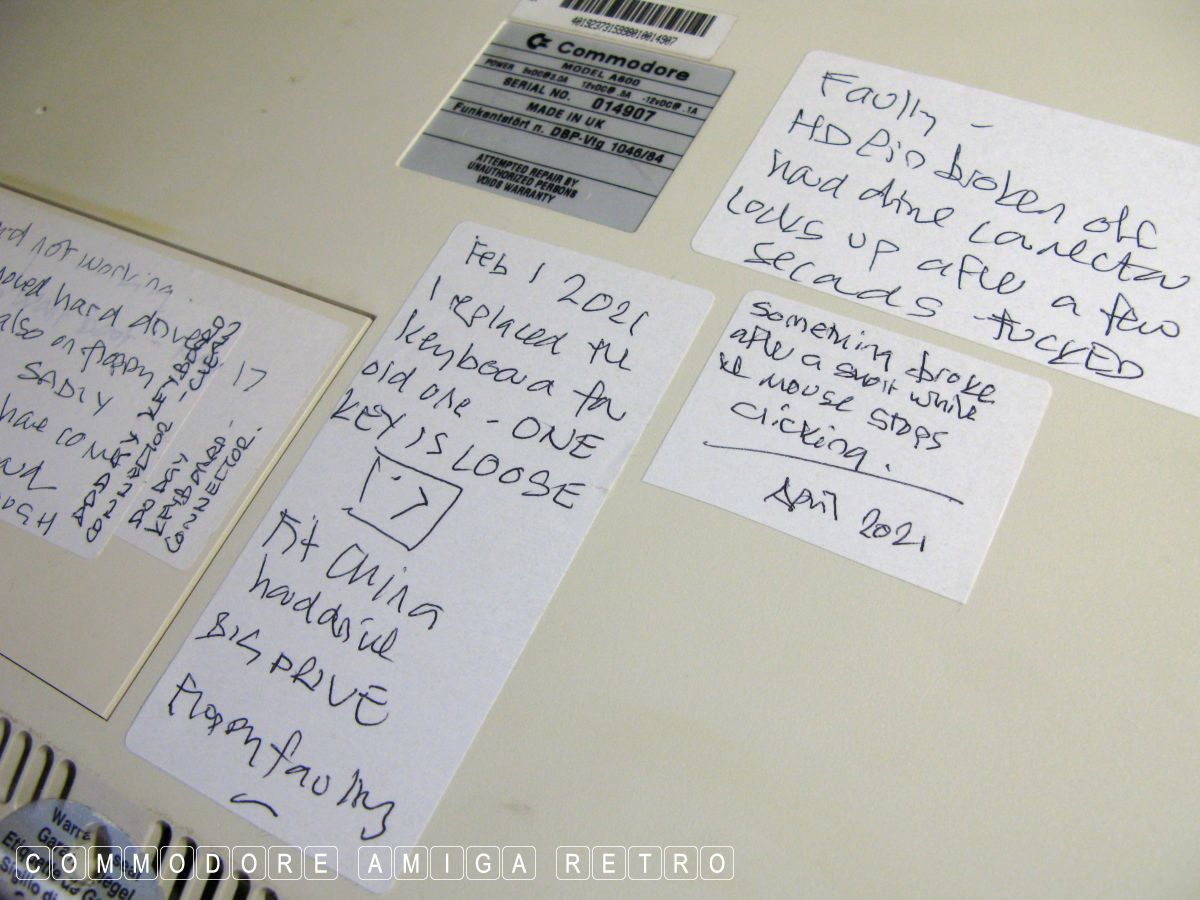 401923731599010014907
Commodore
MODEL A600
POWER 5vDC@3.0A 12vDC@.5A -12vDC@.1A
SERIAL NO. 014907
MADE IN UK
Funkentstört n. DBP-Vfg 1046/84
ATTEMPTED REPAIR BY
UNAUTHORIZED PERSONS
VOIDS WARRANTY
Faulty -
HD Pin broken off
hard drive connector
Locks up after a few
seconds - FUCKED
Something broke
after a short while
mouse stops
clicking.
April 2021
Feb 1 2021
I replaced the
keyboard for
old one - ONE
KEY IS LOOSE
[:>]
Fit China
harddrive
BIG DRIVE
Floppy faulty
not working
hard drive
also on floppy
SADLY
have
KEYBOARD
CONNECTOR - CLEAN?
17
KEYBOARD -
CONNECTOR.
COMMODORE AMIGA RETRO